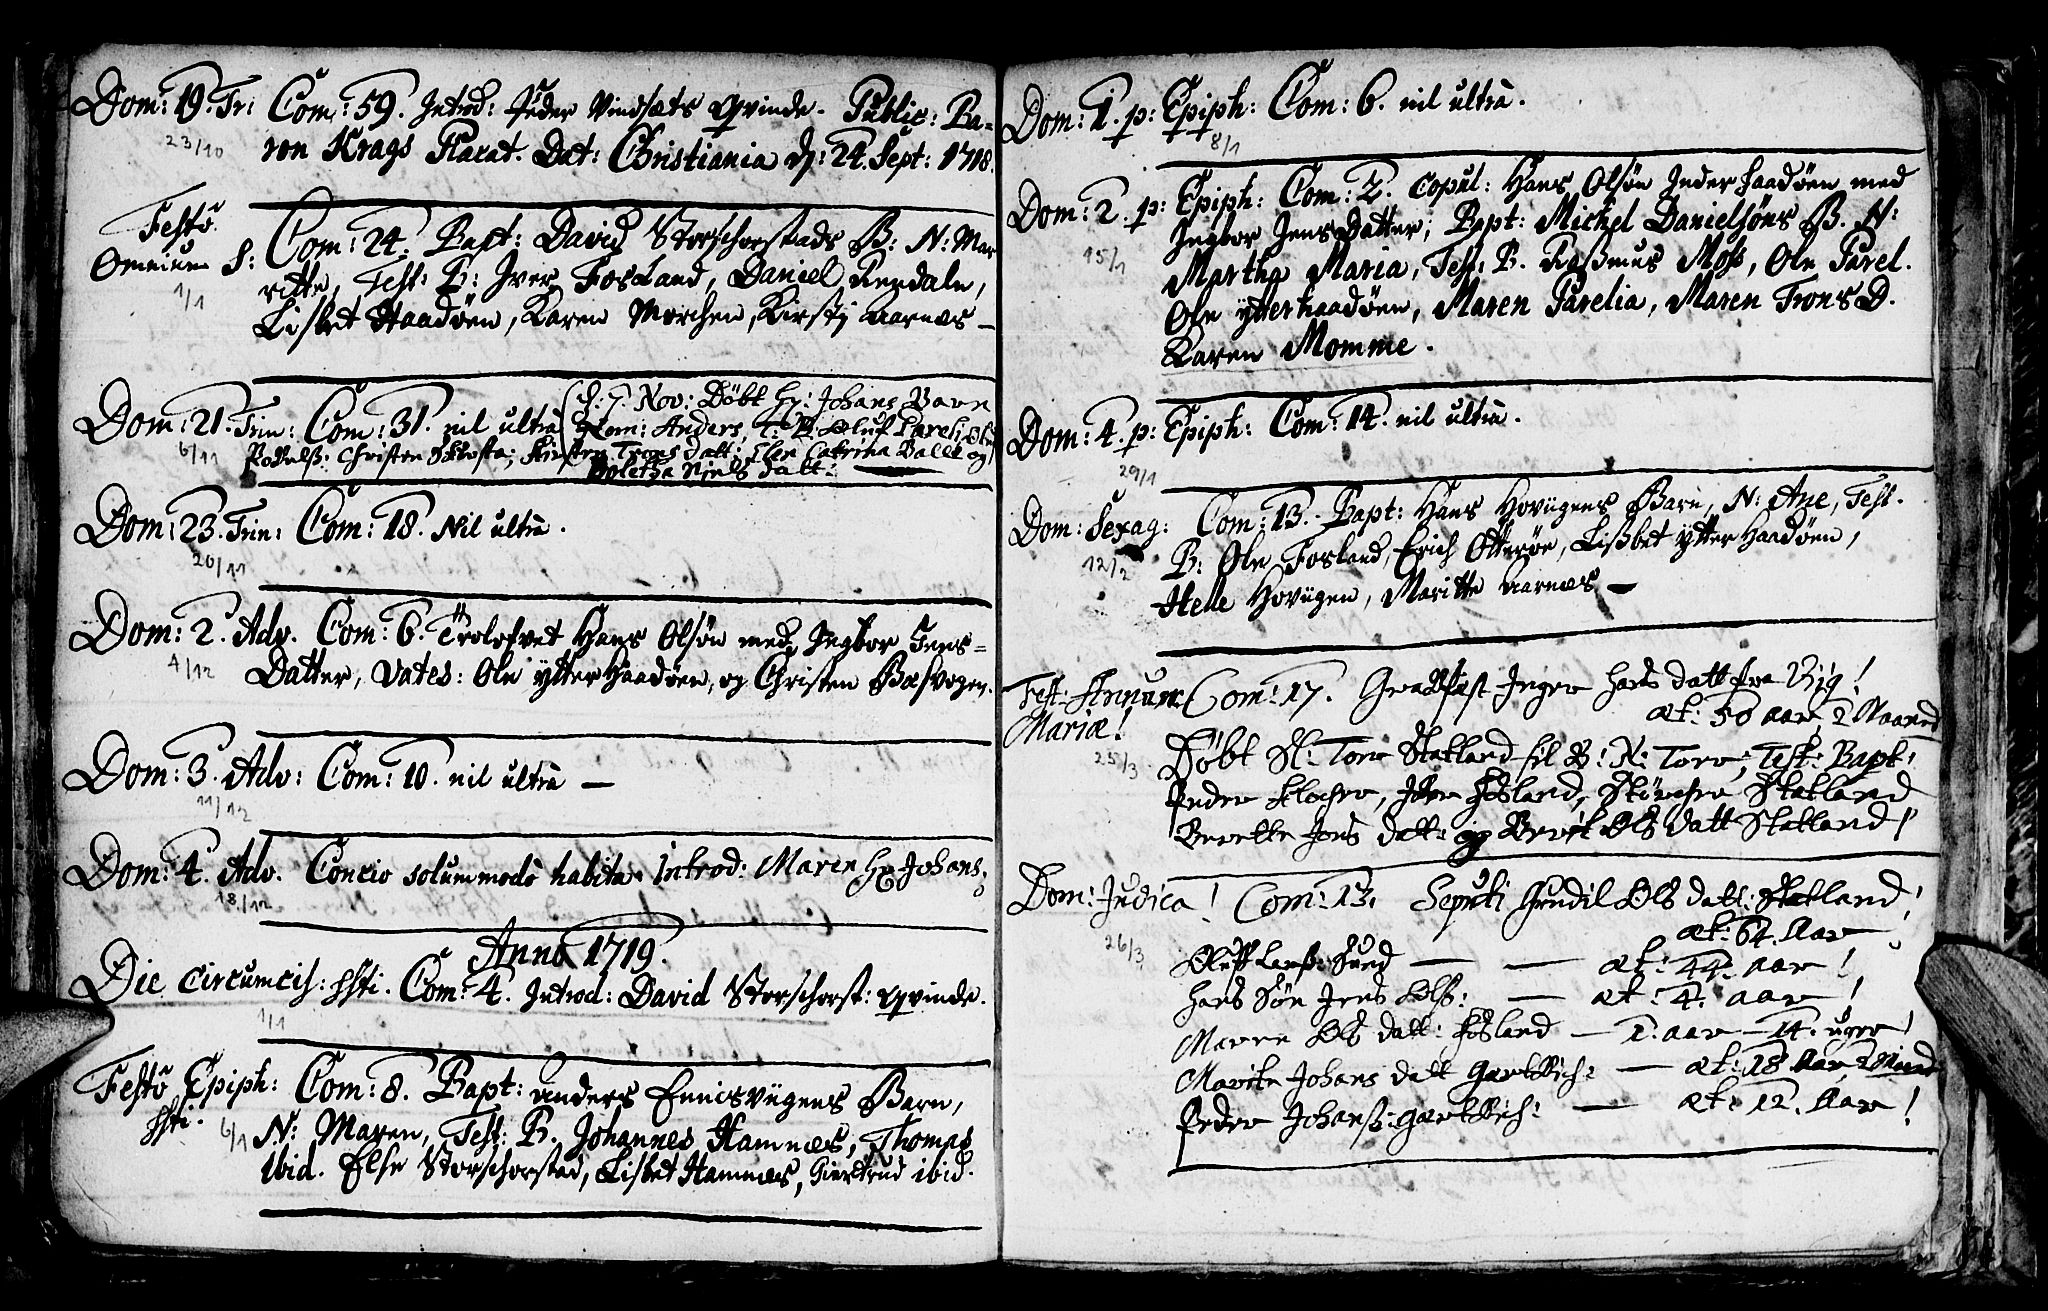 Dom: 19. Tr: Com: 59. Introd: Peder Vindsæts qvinde. Public: Ba-
23/10 ron Krags Placat. Dat: Christiania d: 24. Sept: 1718.
Festo
Omnium S: Com: 24. Bapt: David Storschorstads B: N: Mar
1/1 ritte, Test: B: Iver Fosland, Daniel
Lisbet Haadøen, Karen Morchen, Kirstj Aarnes —
Dom: 21. Trin: Com: 31. nil ultra (d: 7. Nov: Døbt Hr: Johans Barn
6/11 Nom: Anders, T: B Oluf Pareli, Ole
Christen; Kirsten Trons datt: Elen Catrina Balle og
Boletha Niels datt:
Dom: 23. Trin: Com: 18. Nil ultra.
20/11
Dom: 2. Adv. Com: 6. Trolofvet Hans Olsøn med Ingbor Jens-
4/12 Datter, Vates: Ole ytter Haadøen, og Christen
Dom: 3. Adv: Com: 10. nil ultra —
11/12
Dom: 4. Adv. Concio solummodo habita. Introd: Maren Hr Johans.
18/12
Anno 1719.
Die Circumcis: Com: 4. Introd: David Storschorst: qvinde.
1/1
Festo Epiph: Com: 8. Bapt: Anders Barn,
6/1 N: Maren, Test: B. Johannes Hamnæs, Thomas
ibid. Else Storschorstad, Lisbet Hamnæs, Giertrud ibid.
Dom: 1. p: Epiph: Com: 6. nil ultra.
8/1
Dom: 2. p: Epiph: Com: 7. Copul: Hans Olsøn Inder Haadøen med
15/1 Ingbor Jens Datter; Bapt: Michel Danielsøns B. N:
Martha Maria, Test: B. Rasmus Moss, Ole Parel.
Ole ytterhaadøen, Maren Parelia, Maren Trons D.
Karen Momme.
Dom: 4. p: Epiph: Com: 14. nil ultra.
29/1
Dom: Sexag: Com: 13. Bapt: Hans Hovügens Barn, N: Ane, Test.
12/2 B: Ole Fosland, Erich Otterøe, Lisbet ytter Haadøen,
Helle Hovügen, Maritte Aarnes —
Fest. Annunc Com: 17. Graffæst Inger Hans datt fra Vig!
Mariæ! æt: 50 aar 2 Maaned
25/3 Døbt Sl: Tore Statland sil B: N: Tore; Test: Bapt:
Peder Klocher, Iver Fosland, Statland
Berette Jons datt: og Berit Ols datt Statland!
Dom: Judica! Com: 13. Sepulti Gundil Ols datt: Statland!
26/3 æt: 64. Aar
Oluff Larss: Sund — — æt: 44. aar!
Hans Søn Jens Olss: — æt: 4. aar!
Maren Ols datt: Fosland — 1. aar — 14. uger!
Marite Johans datt — æt: 18 Aar
Peder Johanss: — æt: 12. Aar!